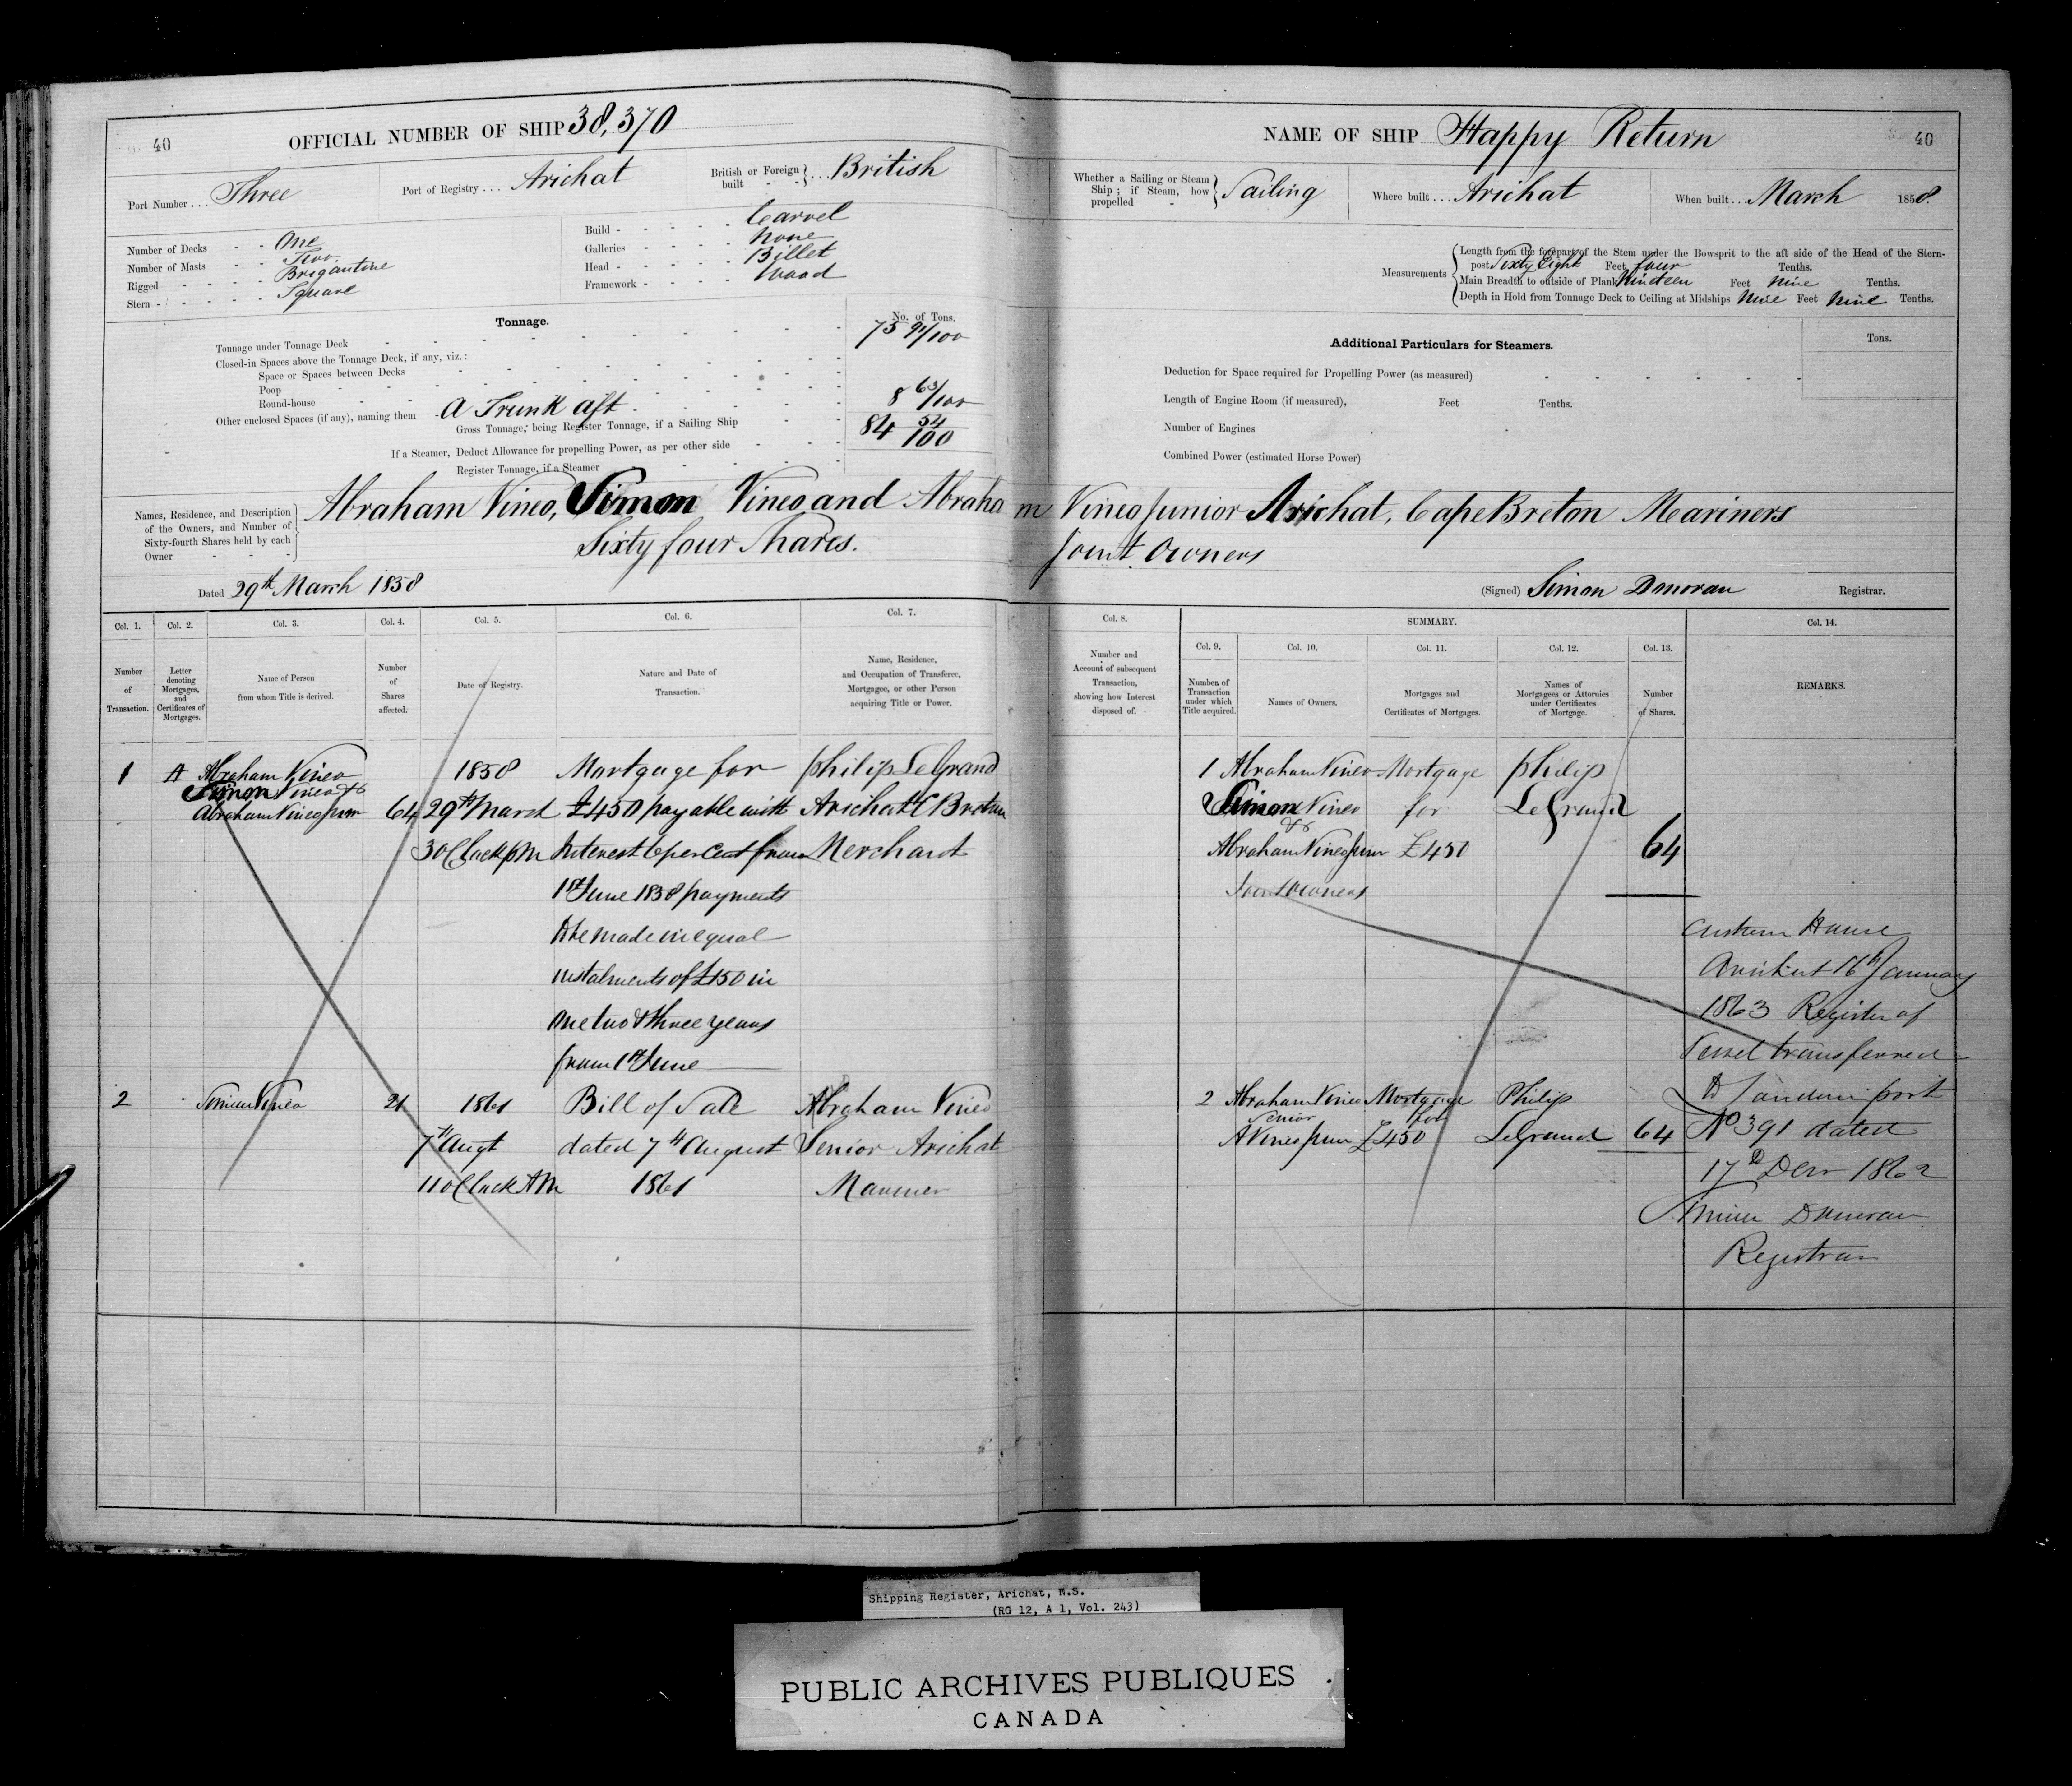 40
OFFICIAL NUMBER OF SHIP 38,370
Port Number . . . Three
Port of Registry . . . Arichat
British or Foreign built } . . . British
Number of Decks - - One
Number of Masts - - Two
Rigged - - - - Brigantine
Stern - - - - - Square
Build - - - - - Carvel
Galleries - - - - None
Head - - - - - Billet
Framework - - - - Wood
Tonnage.
No. of Tons.
Tonnage under Tonnage Deck 75 91/100
Closed-in Spaces above the Tonnage Deck, if any, viz.:
Space or Spaces between Decks
Poop
Round-house
Other enclosed Spaces (if any), naming them - A Trunk aft - 8 63/100
Gross Tonnage, being Register Tonnage, if a Sailing Ship 84 54/100
If a Steamer, Deduct Allowance for propelling Power, as per other side
Register Tonnage, if a Steamer
NAME OF SHIP Happy Return
40
Whether a Sailing or Steam Ship; if Steam, how propelled } Sailing
Where built . . . Arichat
When built . . . March 1858
Measurements { Length from the forepart of the Stem under the Bowsprit to the aft side of the Head of the Stern-
post Sixty Eight Feet four Tenths.
Main Breadth to outside of Plank Nineteen Feet Nine Tenths.
Depth in Hold from Tonnage Deck to Ceiling at Midships Nine Feet Nine Tenths.
Additional Particulars for Steamers.
Tons.
Deduction for Space required for Propelling Power (as measured)
Length of Engine Room (if measured), Feet Tenths.
Number of Engines
Combined Power (estimated Horse Power)
Names, Residence, and Description of the Owners, and Number of Sixty-fourth Shares held by each Owner
Abraham Vineo, Simon Vineo and Abraham Vineo Junior Arichat, Cape Breton Mariners
Sixty four Shares. Joint Owners
Dated 29th March 1858
(Signed) Simon Donovan Registrar.
Col. 1. Col. 2. Col. 3. Col. 4. Col. 5. Col. 6. Col. 7.
Number of Transaction.
Letter denoting Mortgages, and Certificates of Mortgages.
Name of Person from whom Title is derived.
Number of Shares affected.
Date of Registry.
Nature and Date of Transaction.
Name, Residence, and Occupation of Transferee, Mortgagee, or other Person acquiring Title or Power.
Col. 8.
Number and Account of subsequent Transaction, showing how Interest disposed of.
SUMMARY.
Col. 9. Col. 10. Col. 11. Col. 12. Col. 13.
Number of Transaction under which Title acquired.
Names of Owners.
Mortgages and Certificates of Mortgages.
Names of Mortgagees or Attornies under Certificates of Mortgage.
Number of Shares.
Col. 14.
REMARKS.
1 A Abraham Vineo 1858 Mortgage for Philip LeGrand
Simon Vineo &
Abraham Vineo Junr 64 29th March £450 payable with Arichat C Breton
3 OClock PM Interest 6 per Cent from Merchant
1st June 1858 payments
to be made in equal
instalments of £150 in
one two & three years
from 1st June
2 Simon Vineo 21 1861 Bill of Sale Abraham Vineo
7th Augt dated 7th August Senior Arichat
11 OClock AM 1861 Mariner
1 Abraham Vineo Mortgage Philip
Simon Vineo for LeGrand
&
Abraham Vineo Junr £450 64
Joint Owners
2 Abraham Vineo Mortgage Philip
Senior for
A Vineo Junr £450 LeGrand 64
Custom House
Arichat 16th January
1863 Register of
Vessel transferred
to London port
No 391 dated
17th Decr 1862
Simon Donovan
Registrar
Shipping Register, Arichat, N.S.
(RG 12, A 1, Vol. 243)
PUBLIC ARCHIVES PUBLIQUES
CANADA